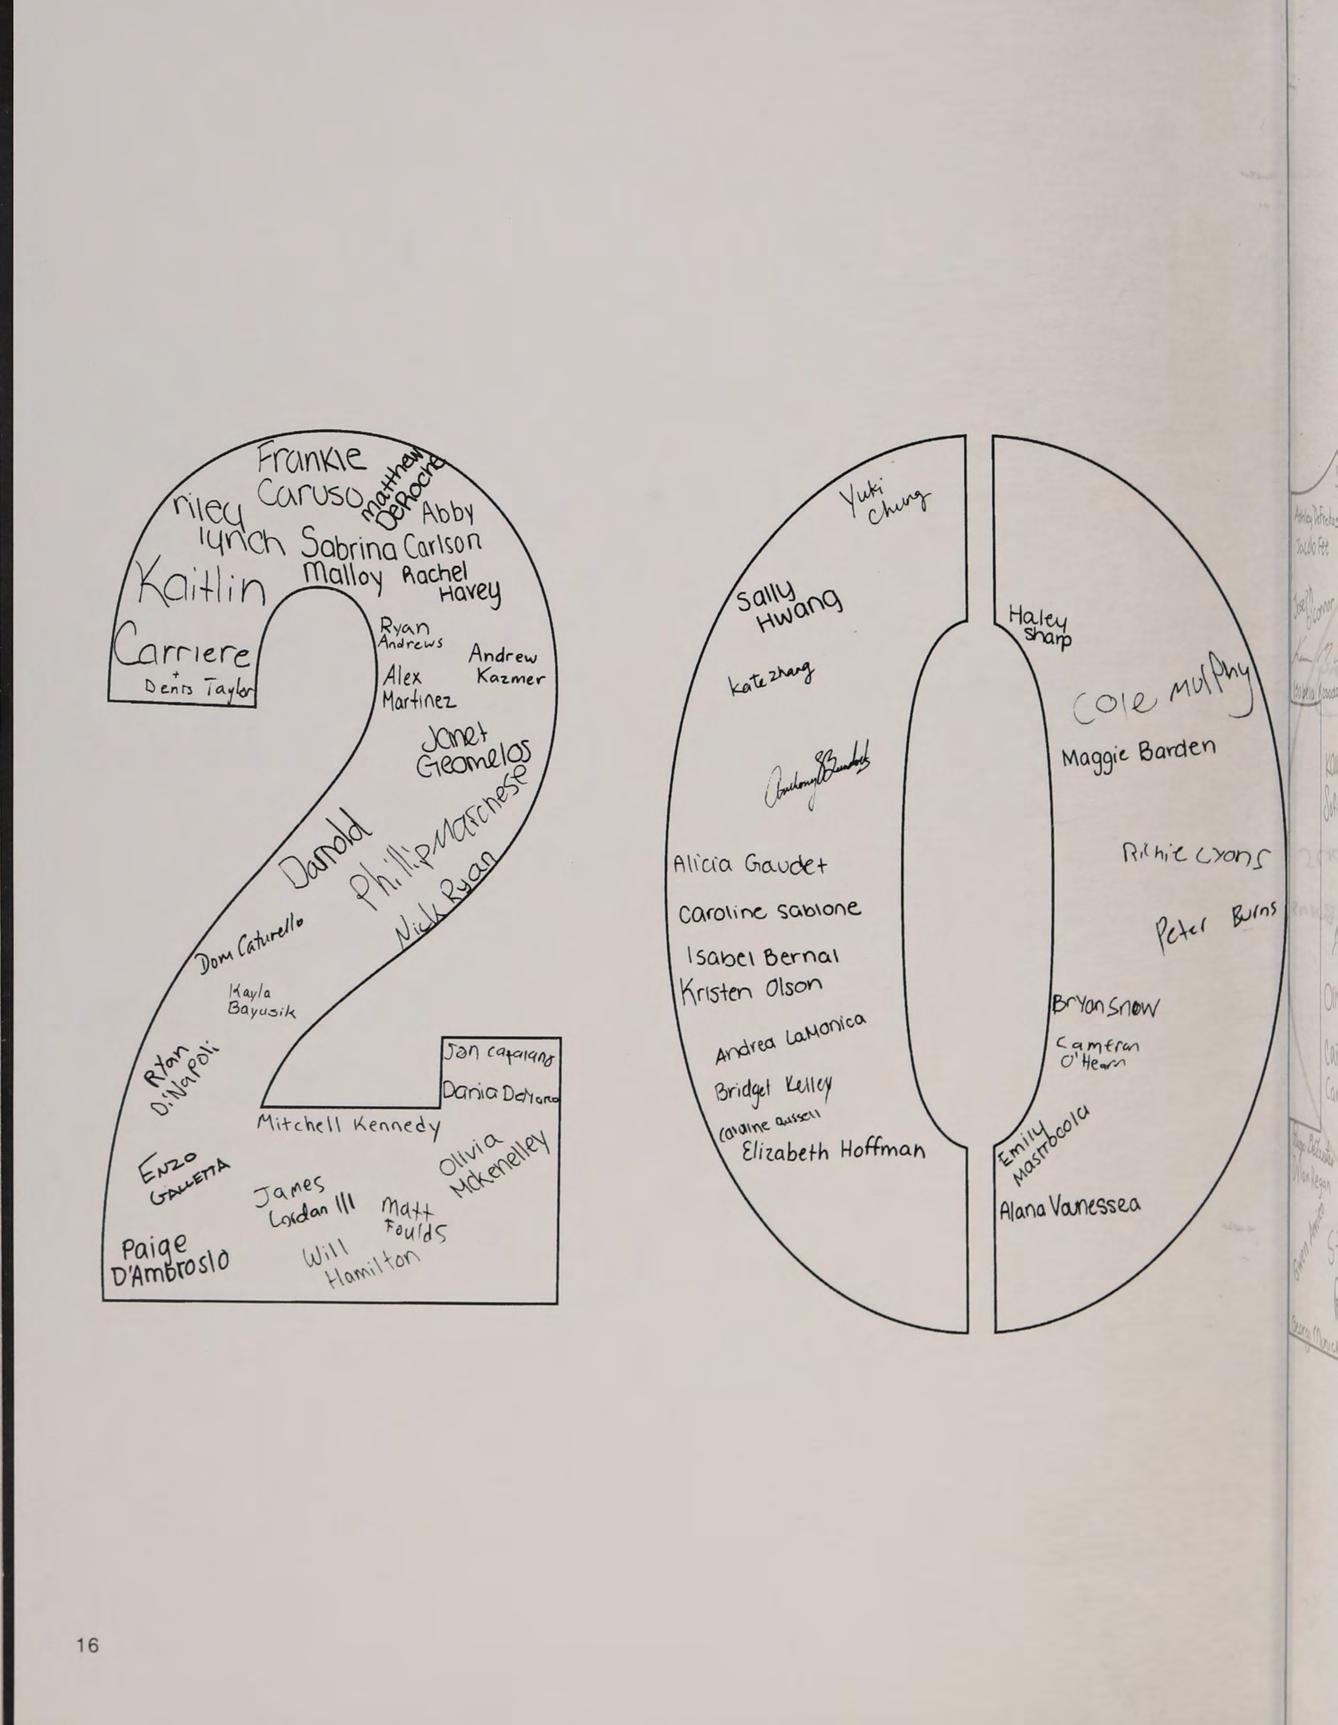 Frankie
Caruso
Matthew
DeRoche
riley
lynch
Abby
Carlson
Sabrina
Malloy
Rachel
Havey
Kaitlin
Carriere
+
Denis Taylor
Ryan
Andrews
Andrew
Kazmer
Alex
Martinez
Janet
Geomelos
Phillip Marchese
Darnold
Nick Ryan
Dom Caturello
Kayla
Bayusik
Ryan
DiNapoli
Jan
Dania
Mitchell Kennedy
Olivia
McKenelley
Enzo
GALLETTA
James
Lordan III
Matt
Foulds
Will
Hamilton
Paige
D'Ambrosio
Yuki
Chung
Sally
Hwang
Kate Zhang
Alicia Gaudet
Caroline Sablone
Isabel Bernal
Kristen Olson
Andrea LaMonica
Bridget Kelley
Caroline Russell
Elizabeth Hoffman
Haley
Sharp
Cole Murphy
Maggie Barden
Richie Lyons
Peter Burns
Bryan Snow
Cameron
O'Hearn
Emily
Mastrocola
Alana Vanessea
16